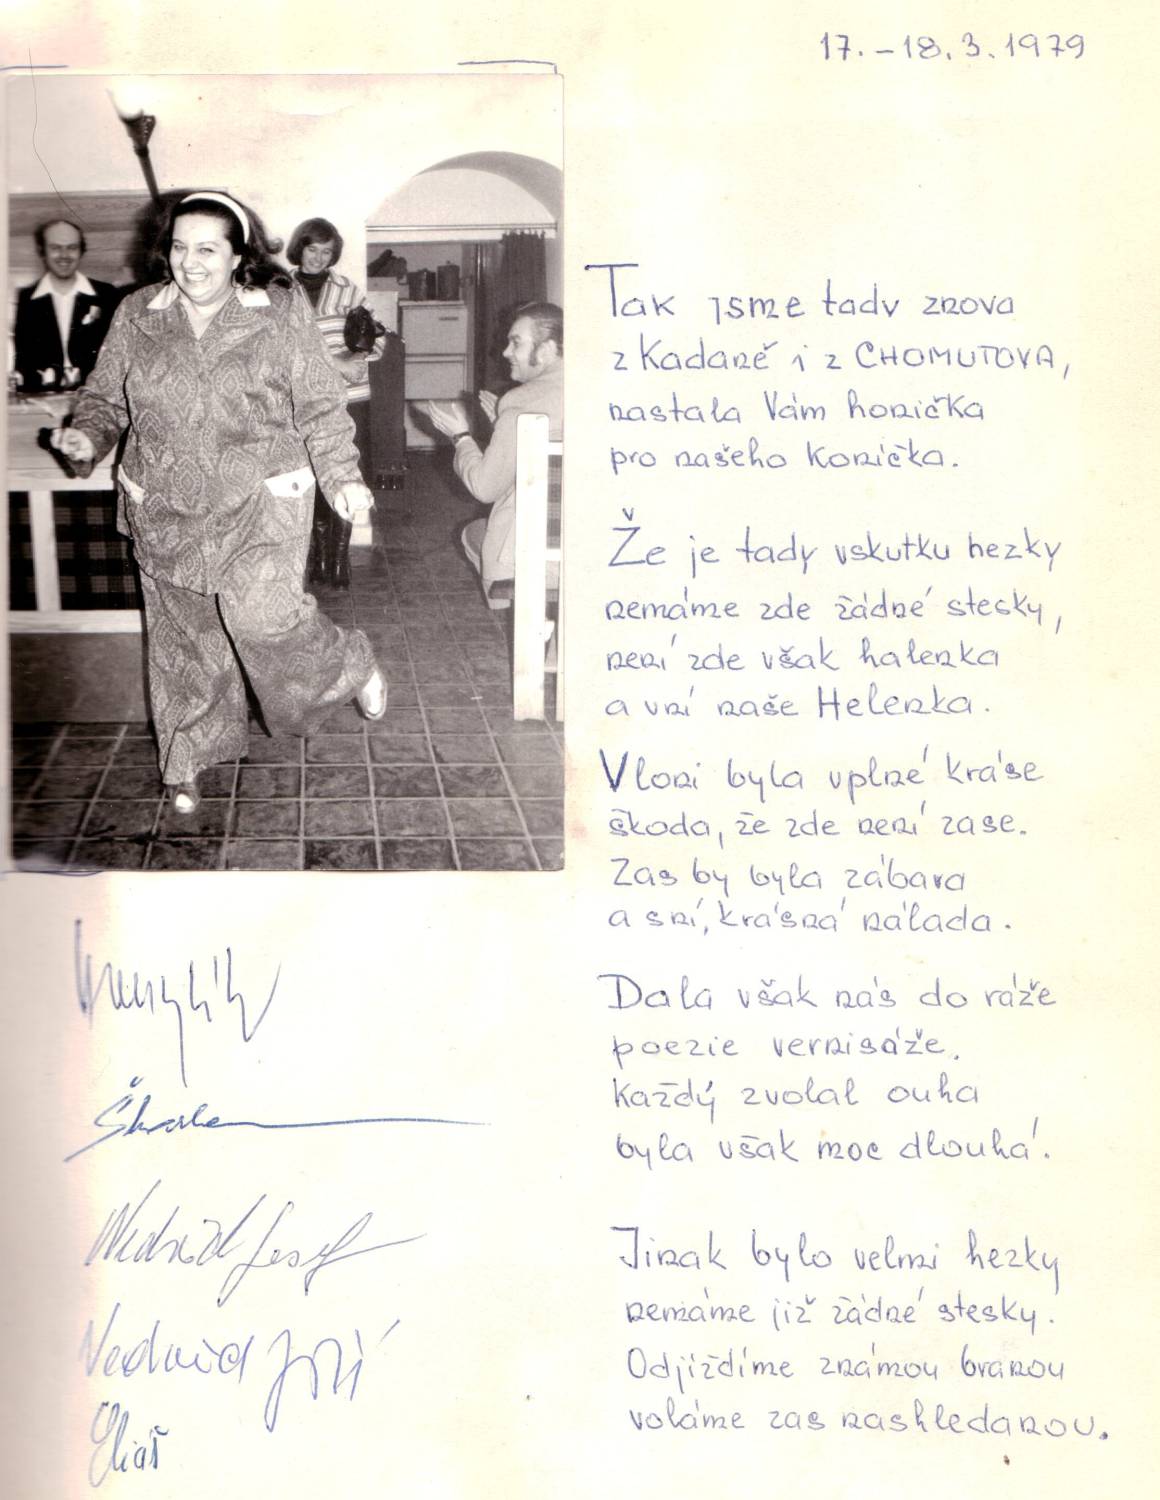 17. - 18. 3. 1979
Tak jsme tady znova
z Kadaně i z CHOMUTOVA,
nastala Vám honička
pro našeho Konička.
Že je tady vskutku hezky
nemáme zde žádné stesky,
není zde však halenka
a vní naše Helenka.
Vloni byla vplné kráse
škoda, že zde není zase.
Zas by byla zábava
a sní, krásná nálada.
Dala však nás do ráže
poezie vernisáže.
Každý zvolal ouha
byla však moc dlouhá.
Jinak bylo velmi hezky
nemáme již žádné stesky.
Odjíždíme známou branou
voláme zas nashledanou.
Nedvěd Josef
Nedvěd Jiří
Eliáš